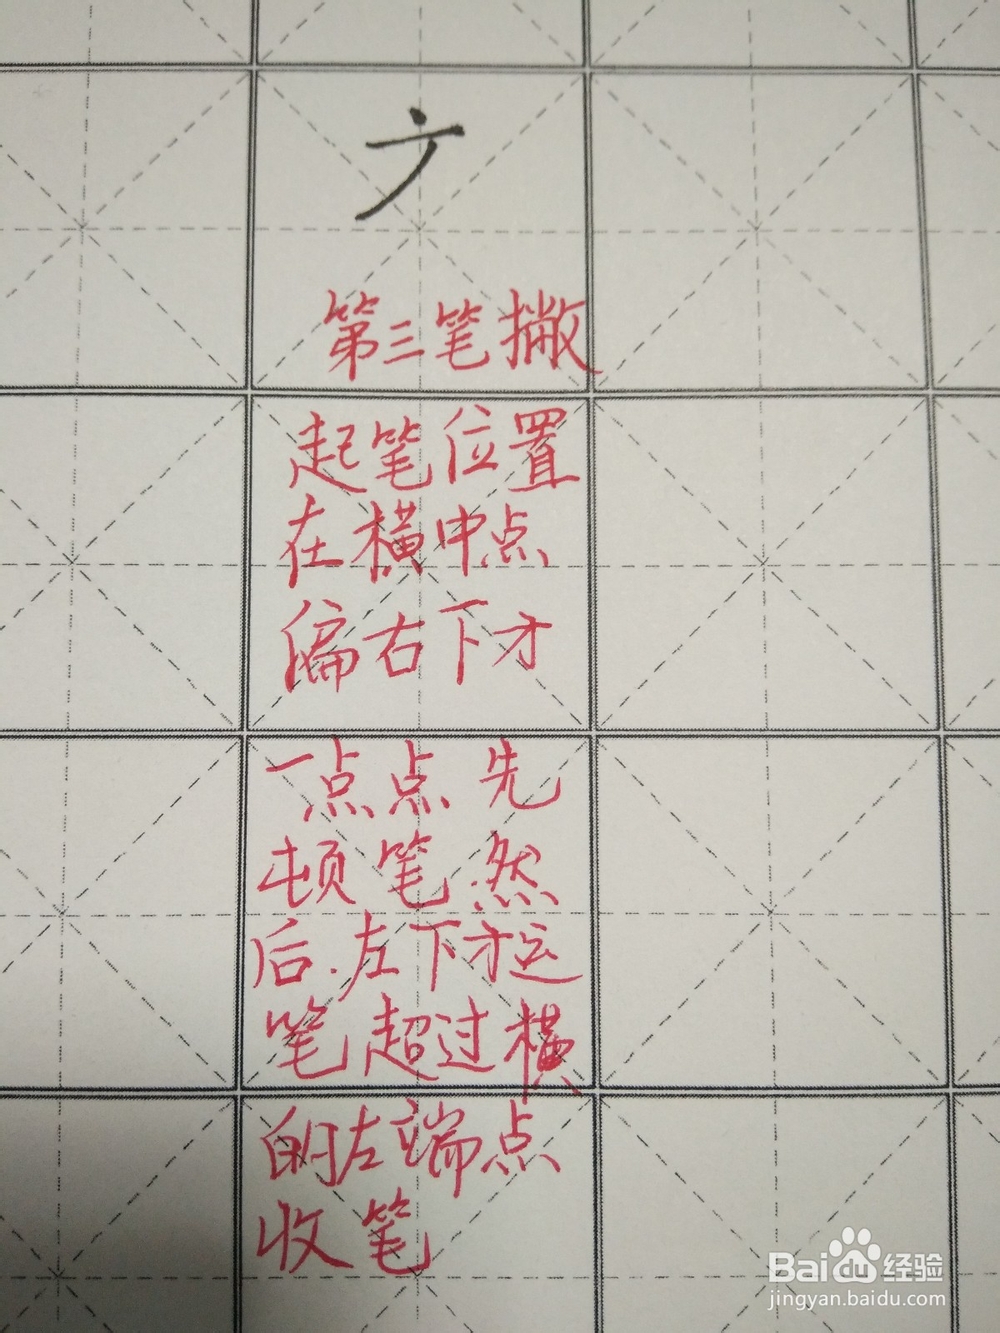 第三笔撇
起笔位置
在横中点
偏右下才
一点点 先
顿笔 然
后.左下才运
笔超过横
的左端点
收笔
Baidu经验
jingyan.baidu.com